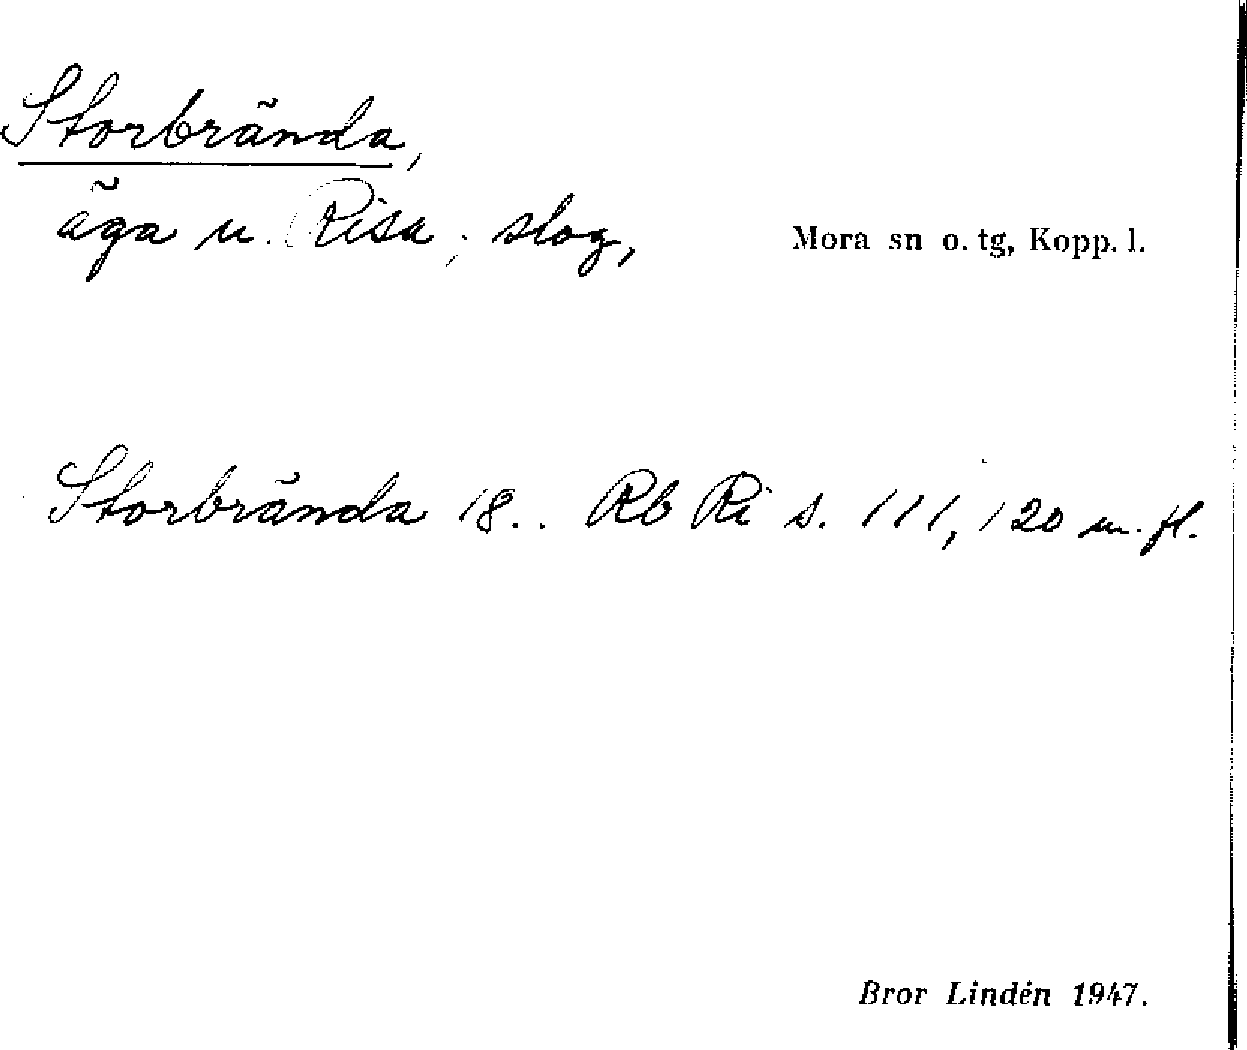 Storbrända,
äga u. Risa; slog, Mora sn o. tg, Kopp. l.
Storbrända 18.. Rb Ri s. 111, 120 m. fl.
Bror Lindén 1947.